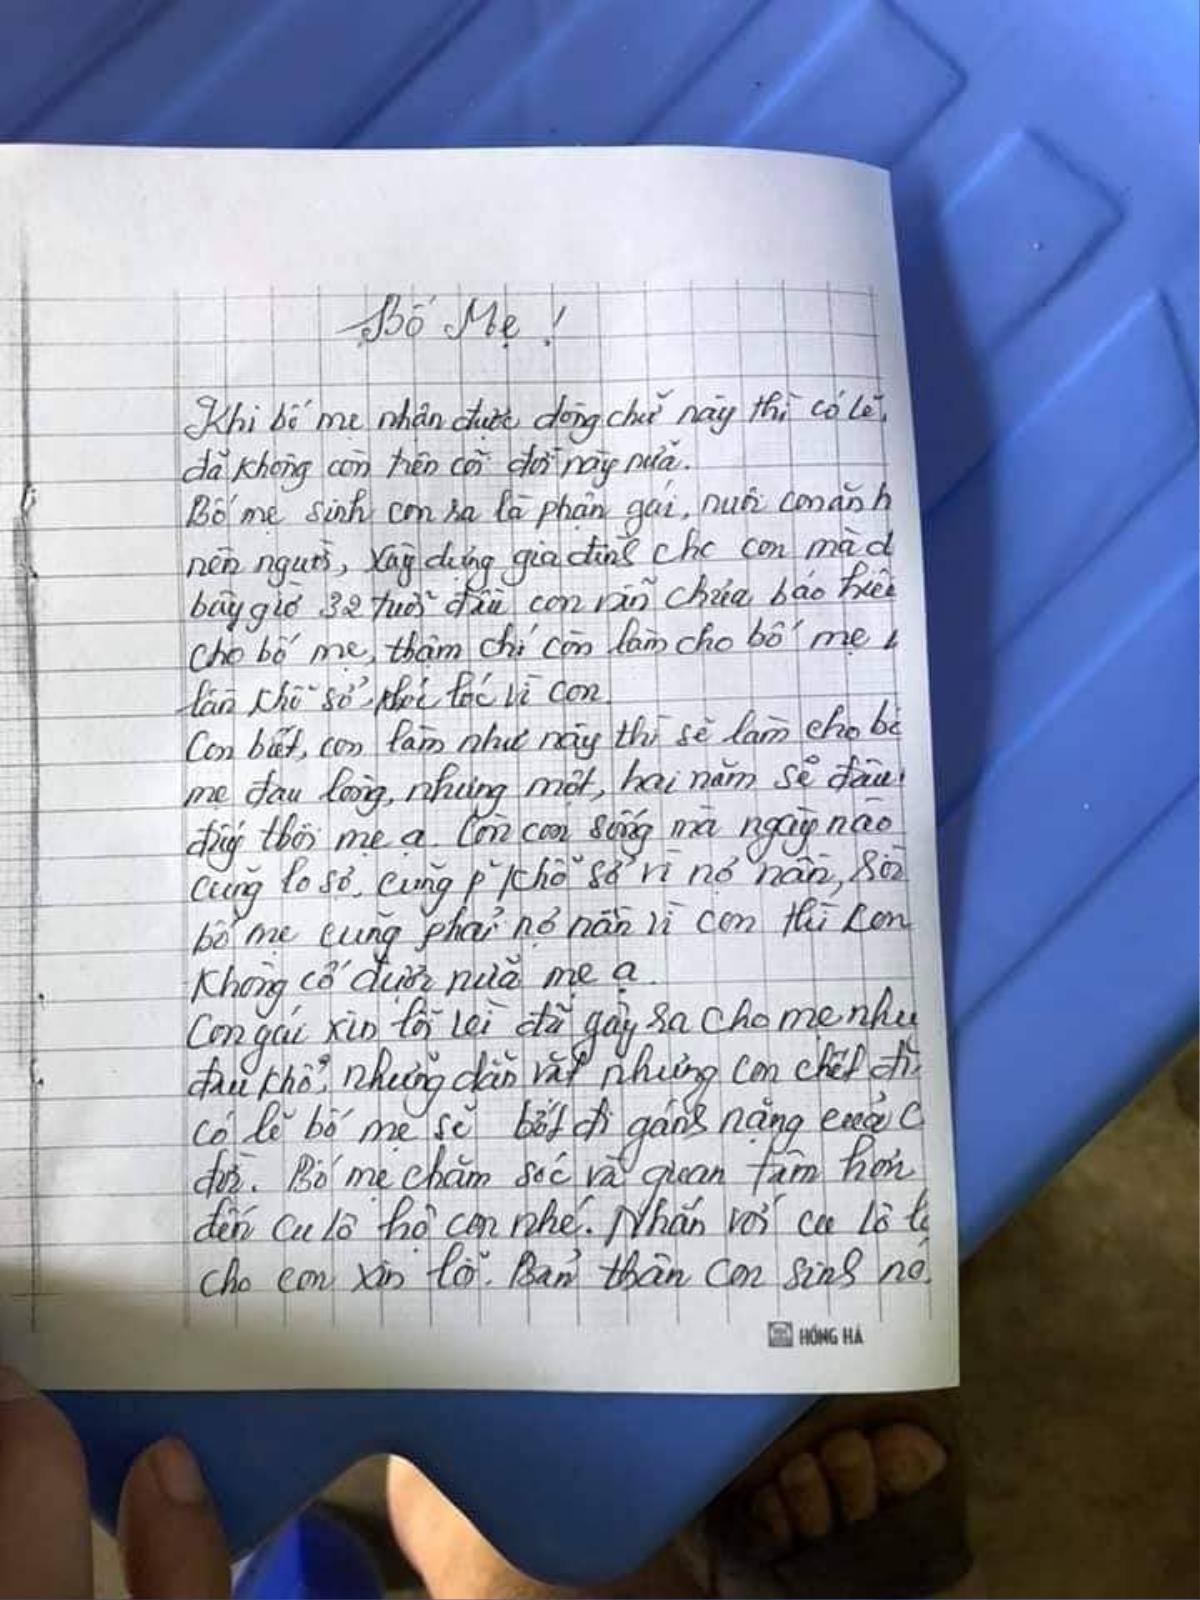 Bố Mẹ !
Khi bố mẹ nhân được dòng chữ này thì có lẽ
đã không còn trên cõi đời này nữa.
Bố mẹ sinh con ra là phận gái, nuôi con ăn h
nên người, xây dựng gia đình cho con mà đ
bây giờ 32 tuổi đầu con vẫn chưa báo hiếu
cho bố mẹ, thậm chí còn làm cho bố mẹ
lần khổ sở, khóc lóc vì con.
Con biết, con làm như này thì sẽ làm cho bố
mẹ đau lòng, nhưng một, hai năm sẽ đâu
đấy thôi mẹ ạ. Còn con sống mà ngày nào
cũng lo sợ, cũng p' khổ sở vì nợ nần, rồi
bố mẹ cũng phải nợ nần vì con thì con
không cố được nữa mẹ ạ.
Con gái xin lỗi vì đã gây ra cho mẹ nhiều
đau khổ, những dằn vặt nhưng con chết đi
có lẽ bố mẹ sẽ bớt đi gánh nặng cuộc
đời. Bố mẹ chăm sóc và quan tâm hơn
đến cu lô hộ con nhé. Nhắn với cu lô là
cho con xin lỗi. Bản thân con sinh nó
HỒNG HÀ